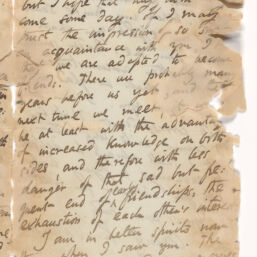 but I hope that may
come some day. If I may
trust the impression of so
an acquaintance with you I
we are adapted to become
friends. There are probably many
years before us yet, and
next time we meet,
be at least with the advantage
of increased knowledge on both
sides, and therefore with less
danger of that sad but fre-
quent end of early friendships, the
exhaustion of each other's interest
I am in better spirits now
when I saw you. The